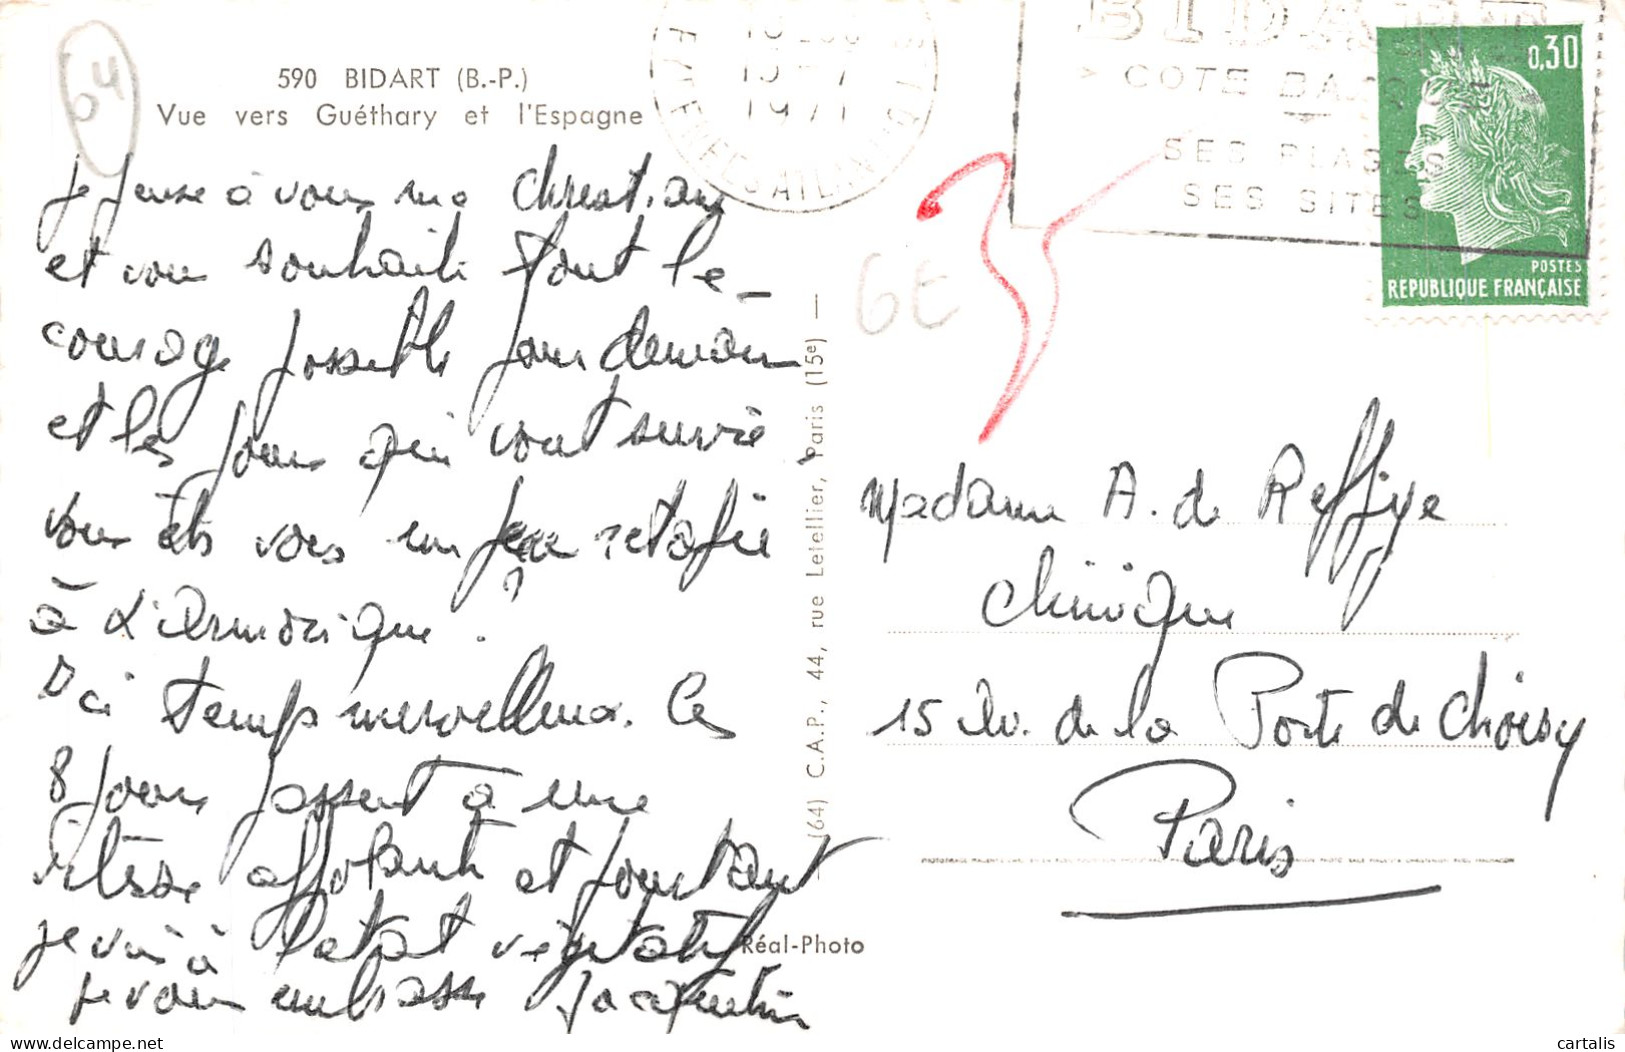 64
590 BIDART (B.-P.)
Vue vers Guéthary et l'Espagne
Je pense à vous ma
et vous souhaite tout le
courage possible pour demain
et les jours qui vont suivre
vous êtes vous un peu retapée
à L'Armorique ?
Ici temps merveilleux. Ces
8 jours passent à une
vitesse affolante et pourtant
je vis à l'etat végétatif
je vous embrasse Jacqueline
(64) C.A.P., 44, rue Letellier, Paris (15e) —
Réal-Photo
1971
PYRENEES ATLANTIQUES
BIDART
COTE BASQUE
SES PLAGES
SES SITES
0,30
POSTES
REPUBLIQUE FRANÇAISE
6E
35
Madame A. de Reffye
Clinique
15 Av. de la Porte de Choisy
Paris
cartalis